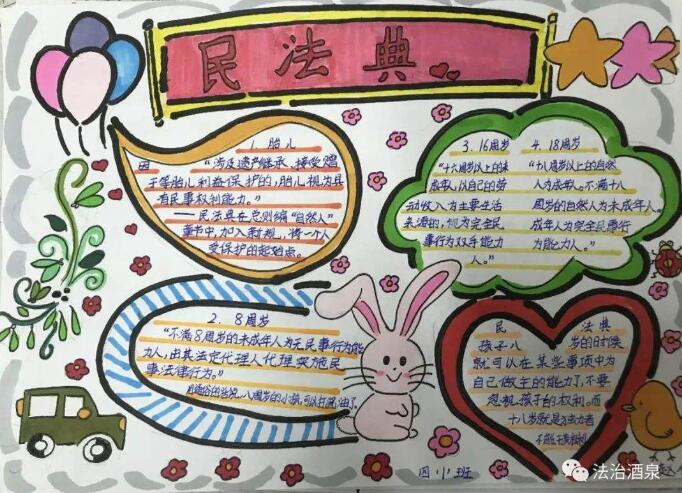 民法典
1. 胎儿
因 “涉及遗产继承、接受赠
于等胎儿利益保护的,胎儿视为具
有民事权利能力。”
——民法典在总则编“自然人”
章节中,加入新规,将一个人
受保护的起始点。
3. 16周岁
“十六周岁以上的未
成年人,以自己的劳
动收入为主要生活
来源的,视为完全民
事行为双手能力
人。”
4. 18周岁
“十八周岁以上的自然
人为成年人。不满十八
周岁的自然人为未成年人。
成年人为完全民事行
为能力人。”
2. 8周岁
“不满8周岁的未成年人为无民事行为能
力人,由其法定代理人代理实施民
事法律行为。”
八周岁的小孩,可以打酱油了。
民 法典
孩子八 岁的时候
就可以在某些事项中为
自己做主的能力了,不要
忽视孩子的权利。而
十八岁就是
四 小 班
法治酒泉